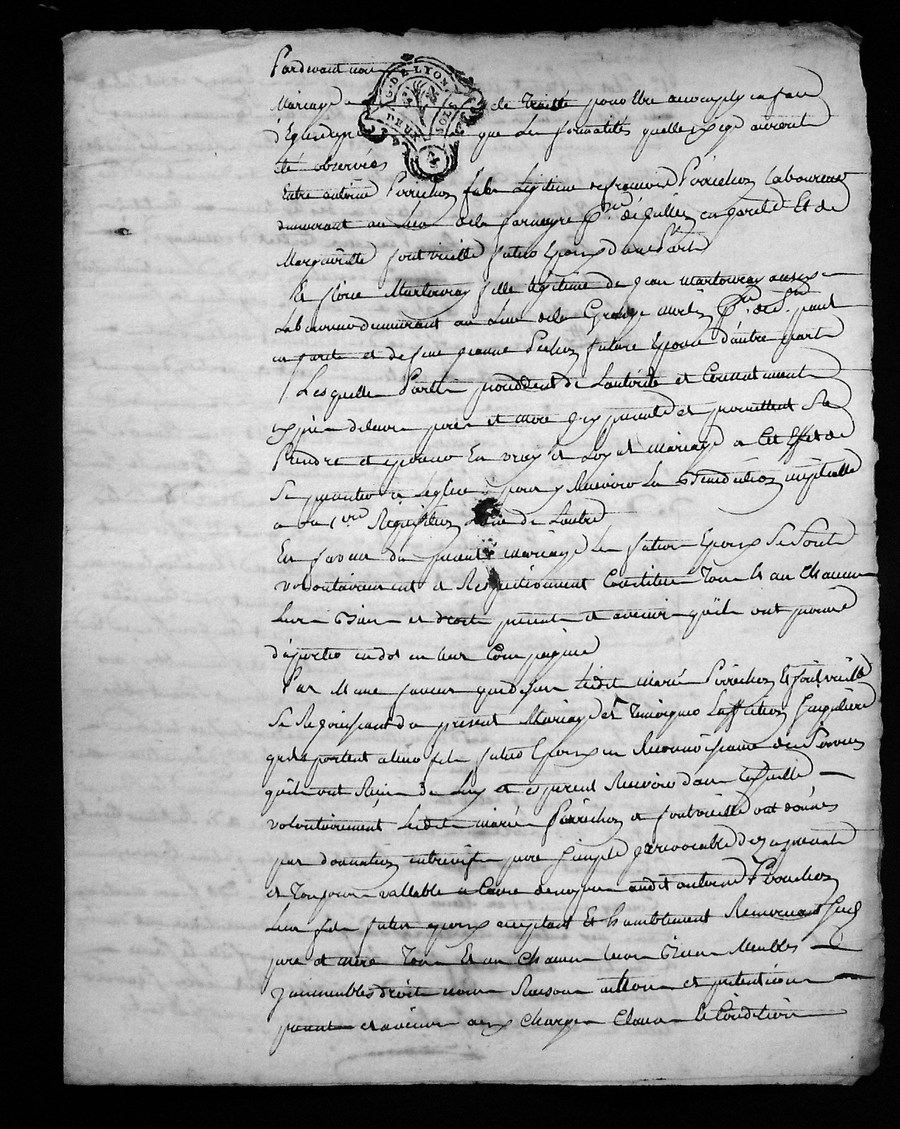 Pardevant nou
G. DE LYON.
DEUX SOLS
4
Mariage de traitté pour Etre accomply en face
d'Eglise que les formalités quelle exige auront
Eté observées
Entre antoine Perrichon fils Legitime de françois Perrichon Laboureur
demeurant au Lieu de la parsse de en forest Et de
Margueritte fontvieille futur Epoux d'une Part
Et fille legitime de Jean aussy
Laboureur demeurant au Lieu de la Grange psse de St paul
en forest et de jeanne future Epouse d'autre part
Lesquelle Partie procedant de Lautorité et Consentement
de leurs pere et mere icy presents et promettent se
Prendre et epouser En vray et Loyal Mariage a Cet Effet de
se presenter a leglise pour y Recevoir La Benediction nuptialle
a La 1ere Requisition L'une de Lautre
En faveur du present mariage les futurs Epoux se sont
volontairement et Respectivement Constitué Tous Et un Chacun
Leurs Biens et droits presents et avenir qu'ils ont promis
d'aporter en dot en leur Compagnie
Par Meme faveur que dessus Lesdits mariés Perrichon Et fontvieille
se Rejouissant du present Mariage et Temoignes Laffection singuliere
quils portent a leur fils futur Epoux en Reconnoissance des services
quils ont Reçu de Luy et esperent Recevoir dans la suitte
volontairement Lesdits mariés Perrichon et fontvieille ont donnés
par donnation entrevifs pure simple Irrevocable des a present
et Toujours vallable a Cause de noces audit antoine Perrichon
Leur fils futur epoux acceptant Et humblement Remerciant ses
pere et mere Tous Et un Chacun leurs Biens Meubles
Immeubles droits noms Raisons actions et pretentions
present et avenir aux Charges Clauses Et Conditions